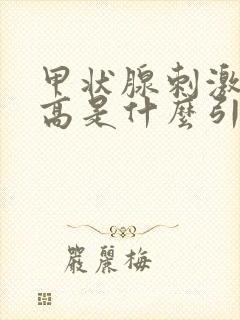 甲状腺刺激
高是什麼引
嚴麗梅